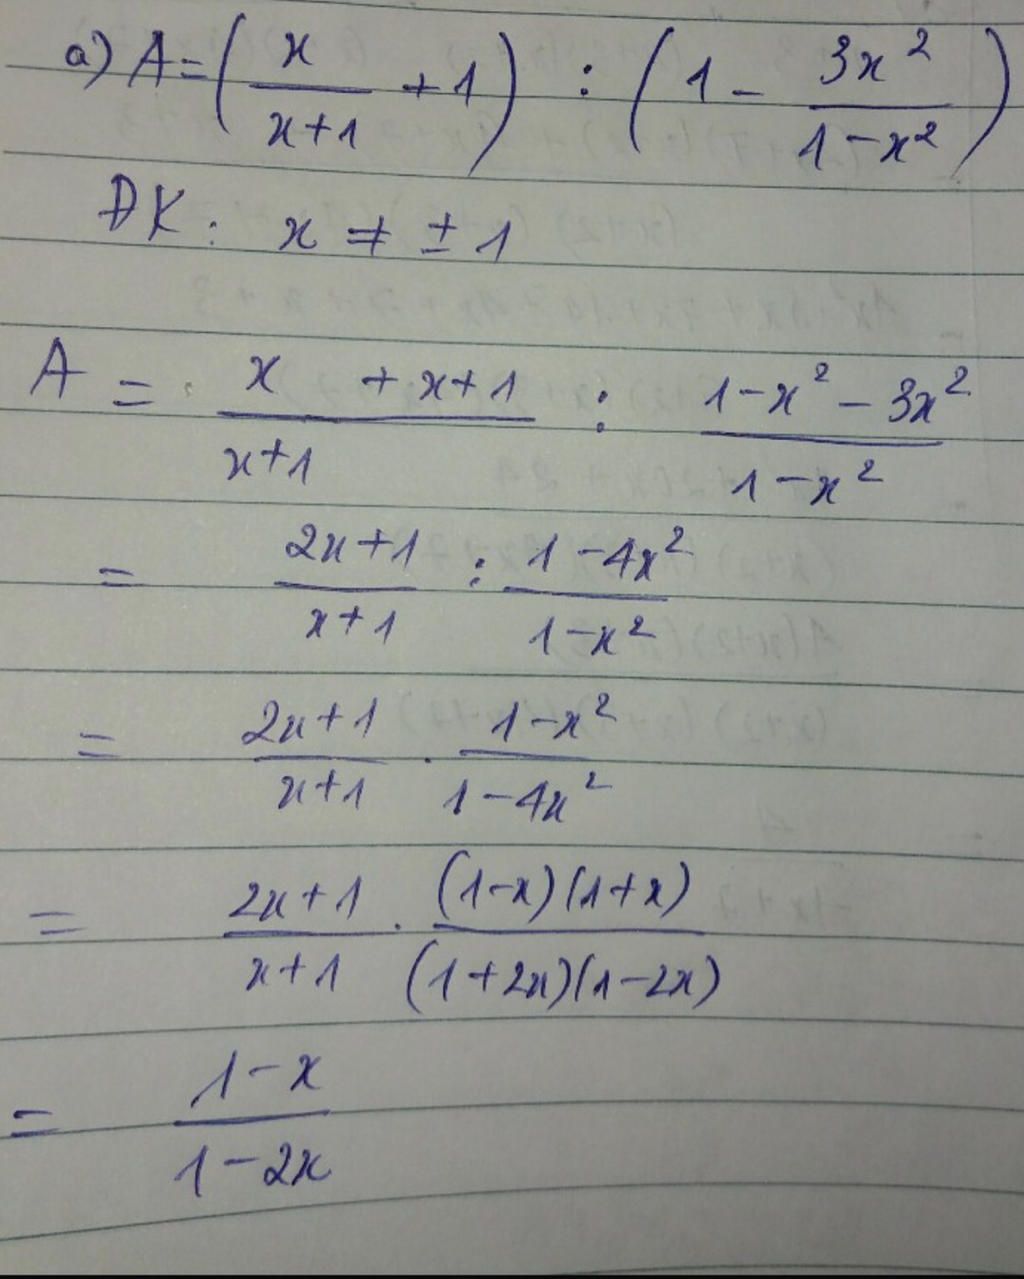 a) A = (x/(x+1) + 1) : (1 - 3x²/(1-x²))
ĐK: x ≠ ±1
A = (x + x+1)/(x+1) : (1-x² - 3x²)/(1-x²)
= (2x+1)/(x+1) : (1-4x²)/(1-x²)
= (2x+1)/(x+1) . (1-x²)/(1-4x²)
= (2x+1)/(x+1) . (1-x)(1+x)/(1+2x)(1-2x)
= (1-x)/(1-2x)